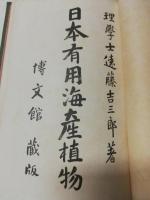 理學士遠藤吉三郎著
日本有用海產植物
博文館藏版